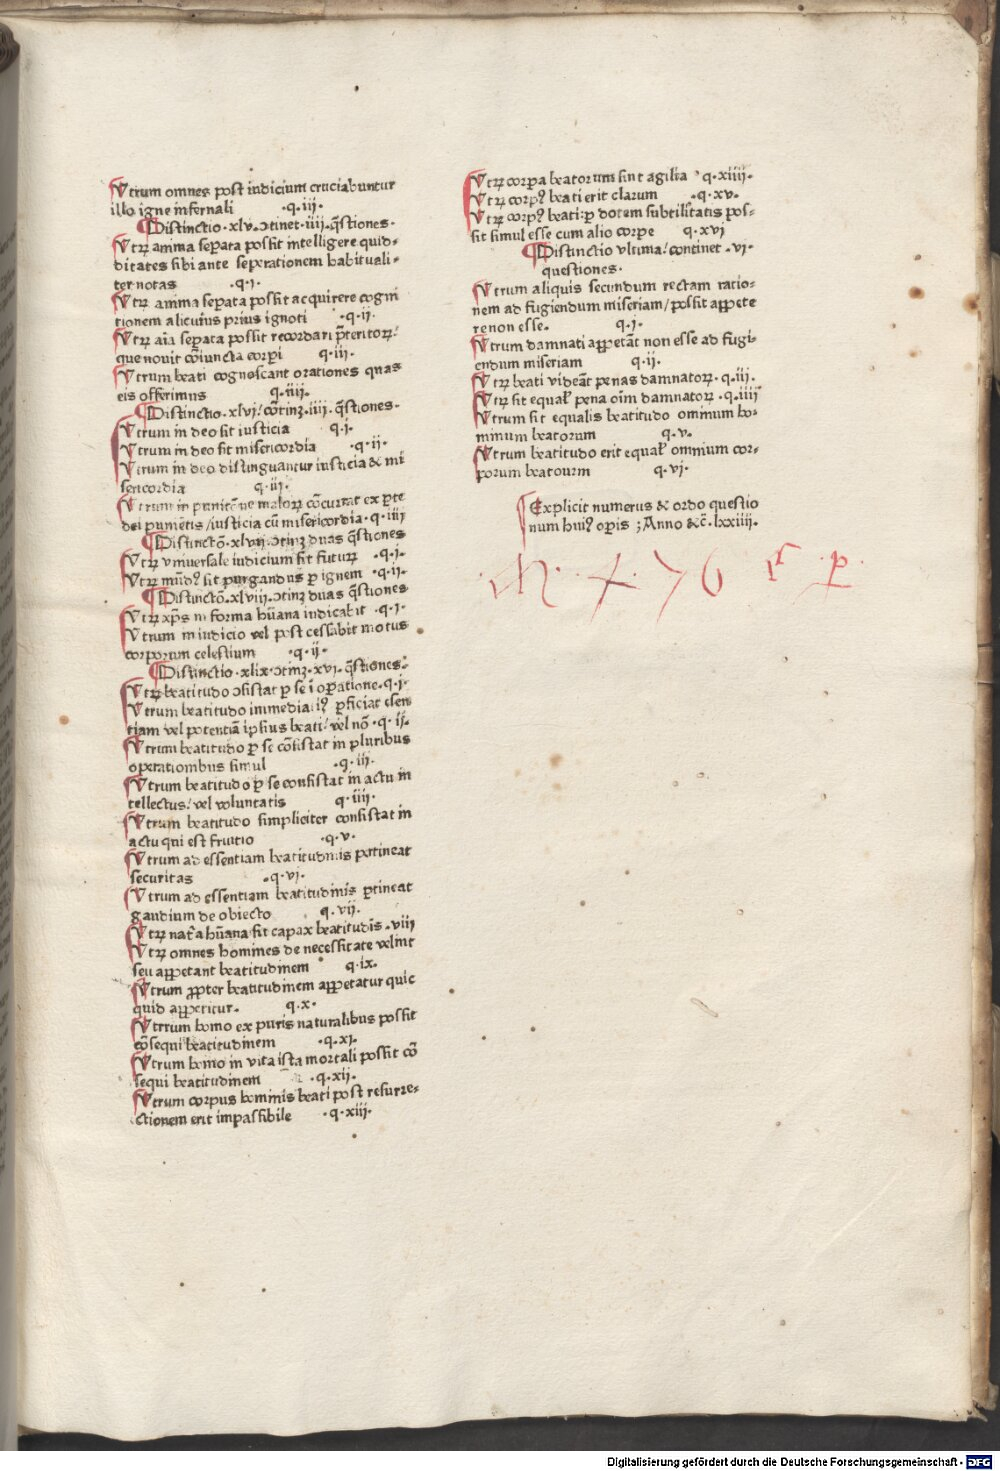 Vtrum omnes post iudicium cruciabuntur
illo igne infernali ·q·iii·
¶Distinctio·xlv·ↄtinet·iiii·q̄stiones·
Vtrꝝ anima seꝑata possit intelligere quid-
ditates sibi ante seperationem habituali-
ter notas ·q·i·
Vtrꝝ anima seꝑata possit acquirere cogni
tionem alicuius prius ignoti ·q·ii·
Vtrꝝ aīa seꝑata possit recordari p̄teritoꝝ/
que nouit cōiuncta corꝑi q·iii·
Vtrum beati cognoscant orationes quas
eis offerimus q·iiii·
¶Distinctio·xlvi/ cōtinꝫ·iiii·q̄stiones·
Vtrum in deo sit iusticia q·i·
Vtrum in deo sit misericordia ·q·ii·
Vtrum in deo distinguantur iusticia & mi
sericordia q·iii·
Vtrum in punitiōne maloꝝ cōcurrat ex ꝑte
dei punietis/iusticia cū misericordia·q·iiii
¶Distinctō·xlvii·ↄtinꝫ duas q̄stiones
Vtrꝝ vniuersale iudicium sit futurꝝ ·q·i·
Vtrꝝ mūdꝰ sit purgandus ꝑ ignem ·q·ii·
¶Distinctō·xlviii·ↄtinꝫ duas q̄stiones
Vtrꝝ xp̄s in forma hūana iudicabit ·q·i·
Vtrum in iudicio vel post cessabit motus
corporum celestium ·q·ii·
¶Distinctio·xlix·ↄtinꝫ·xvi·q̄stiones·
Vtrꝝ beatitudo ↄsistat ꝑ se ī oꝑatione·q·i·
Vtrum beatitudo immediatiꝰ ꝑficiat essen
tiam vel potentiā ipsius beati/ vel nō·q·ii·
Vtrum beatitudo ꝑ se cōsistat in pluribus
operationibus simul ·q·iii·
Vtrum beatitudo ꝑ se consistat in actu in
tellectus/ vel voluntatis q·iiii·
Vtrum beatitudo simpliciter consistat in
actu qui est fruitio ·q·v·
Vtrum ad essentiam beatitudinis pertineat
securitas ·q·vi·
Vtrum ad essentiam beatitudinis ꝑtineat
gaudium de obiecto q·vii·
Vtrꝝ nat̄a hūana sit capax beatitudīs·viii
Vtrꝝ omnes homines de necessitate velint
seu appetant beatitudinem q·ix·
Vtrum ꝓpter beatitudinem appetatur quic
quid appetitur· q·x·
Vtrrum homo ex puris naturalibus possit
cōsequi beatitudinem ·q·xi·
Vtrum homo in vita ista mortali possit cō
sequi beatitudinem ·q·xii·
Vtrum corpus hominis beati post resurre-
ctionem erit impassibile ·q·xiii·
Vtrꝝ corꝑa beatorum sint agilia q·xiiii·
Vtrꝝ corpꝰ beati erit clarum ·q·xv·
Vtrꝝ corpꝰ beati/ ꝑ dotem subtilitatis pos-
sit simul esse cum alio corpe q·xvi
¶Distinctio vltima/ continet ·vi·
questiones·
Vtrum aliquis secundum rectam ratio-
nem ad fugiendum miseriam/possit appete
re non esse· q·i·
Vtrum damnati appetāt non esse ad fugi-
endum miseriam q·ii·
Vtrꝝ beati videāt penas damnatoꝝ·q·iii·
Vtrꝝ sit equal̄ pena oīm damnatoꝝ·q·iiii
Vtrum sit equalis beatitudo omnium ho-
minum beatorum q·v·
Vtrum beatitudo erit equal̄ omnium cor-
porum beatourm q·vi·
Explicit numerus & ordo questio
num huiꝰ oꝑis ;Anno &c̄·lxxiiii·